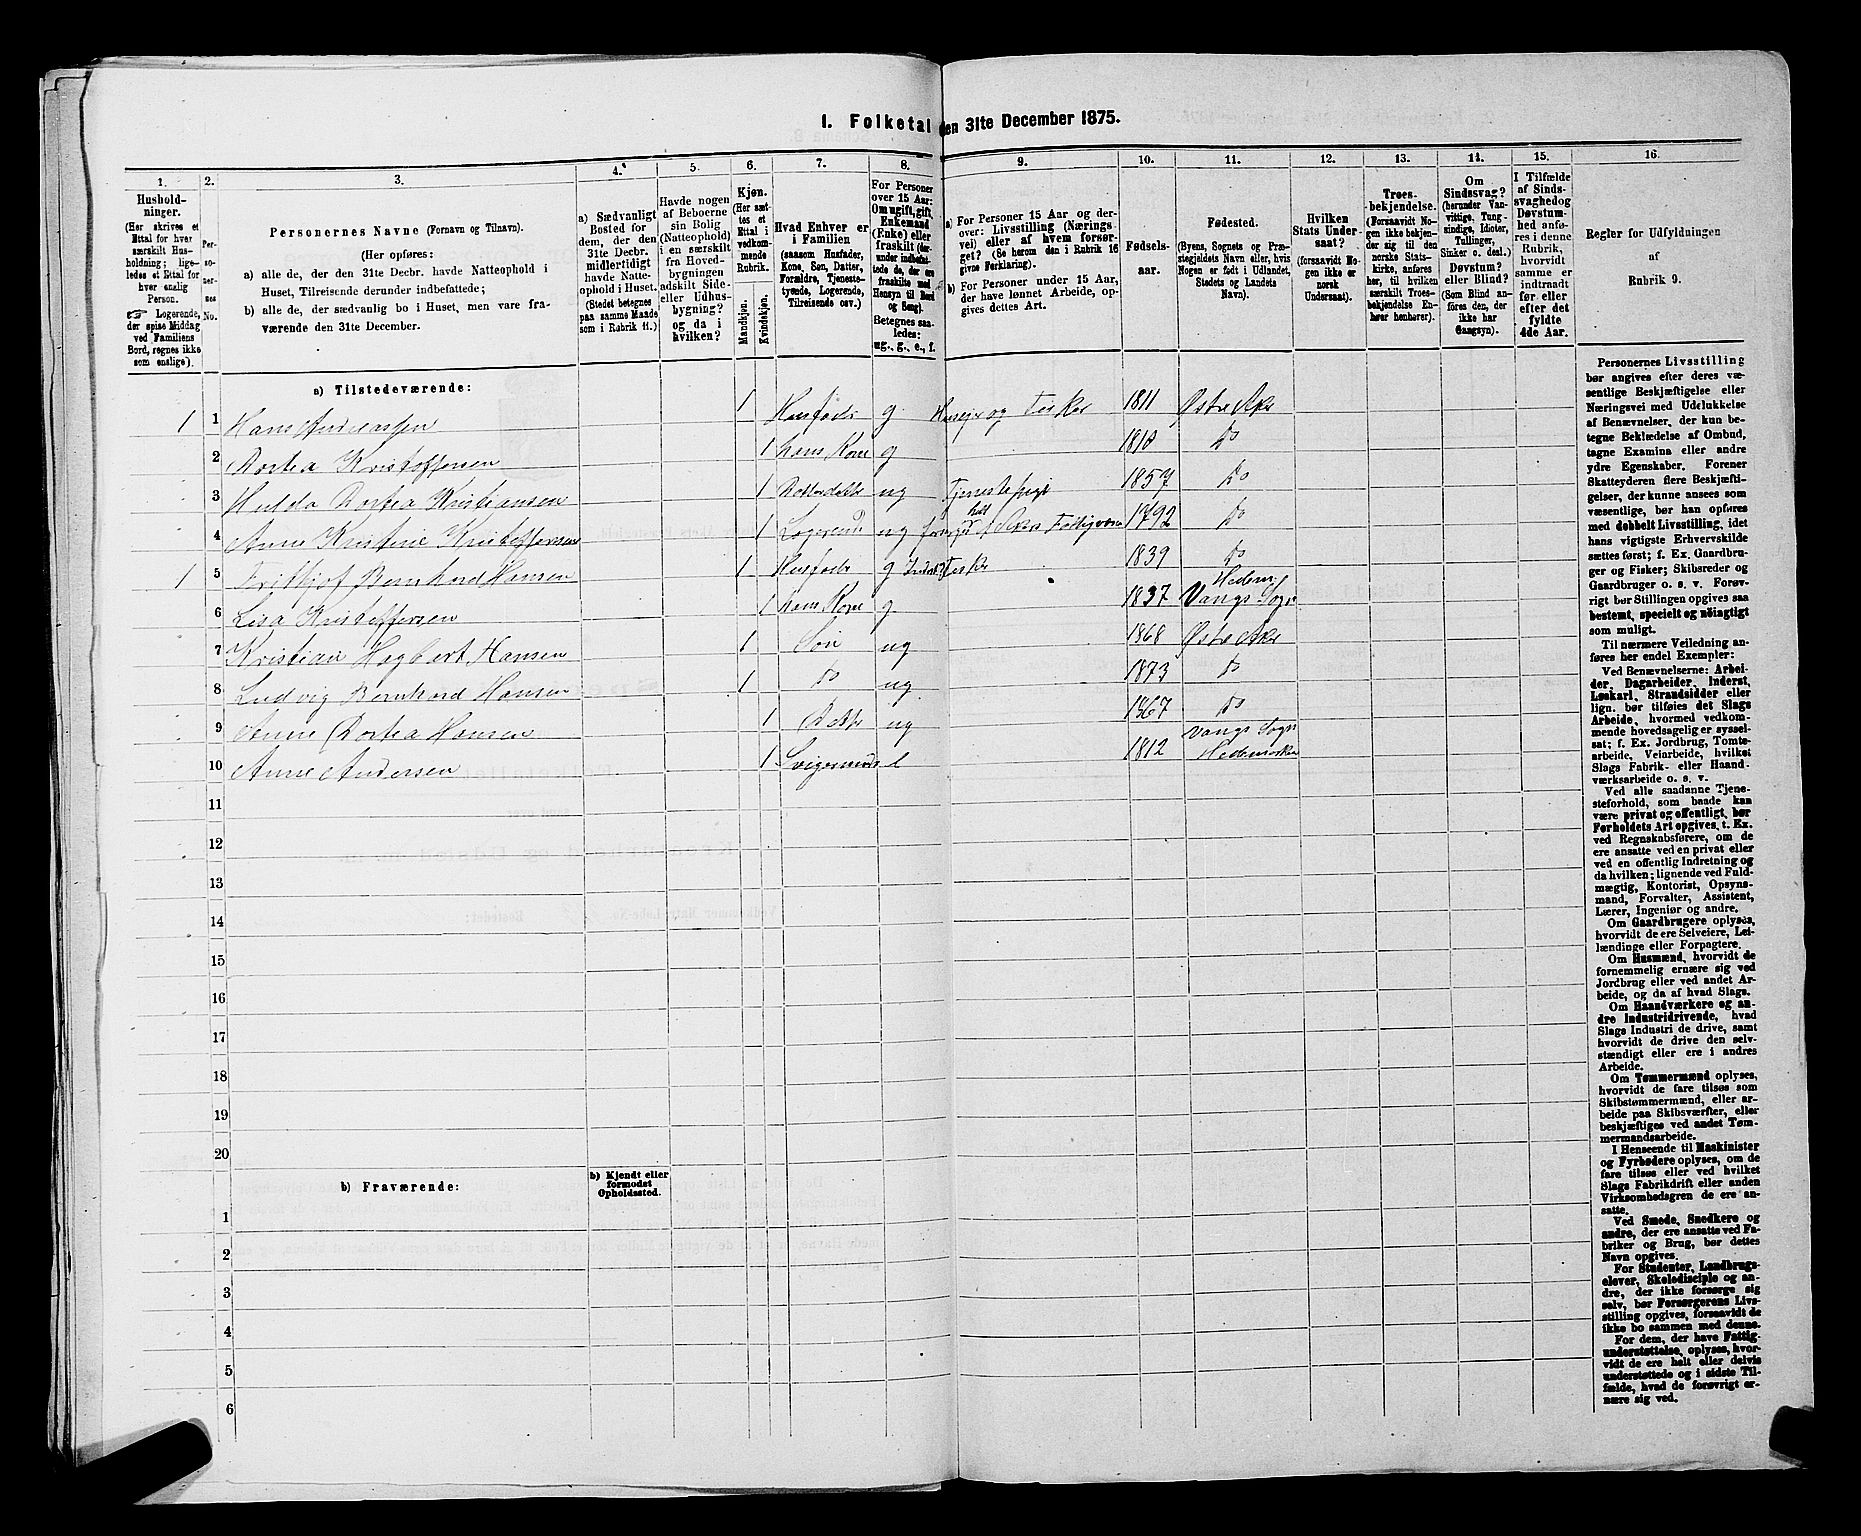 1. Folketal den 31te December 1875.
1. 2. 3. 4. 5. 6. 7. 8. 9. 10. 11. 12. 13. 14. 15. 16.
Husholdninger.
(Her skrives et
Ettal for hver
særskilt Hus-
holdning; lige-
ledes et Ettal for
hver enslig
Person.
☞ Logerende,
der spise Middag
ved Familiens
Bord, regnes ikke
som enslige).
Per-
so-
ner-
nes
No.
Personernes Navne (Fornavn og Tilnavn).
(Her opføres:
a) alle de, der den 31te Decbr. havde Natteophold i
Huset, Tilreisende derunder indbefattede;
b) alle de, der sædvanlig bo i Huset, men vare fra-
værende den 31te December.
a) Sædvanligt
Bosted for
dem, der den
31te Decbr.
midlertidigt
havde Natte-
ophold i Huset.
(Stedet betegnes
paa samme Maade
som i Rubrik 11.)
Havde nogen
af Beboerne
sin Bolig
(Natteophold)
i en særskilt
fra Hoved-
bygningen
adskilt Side-
eller Udhus-
bygning?
og da i
hvilken?
Kjøn.
(Her sæt-
tes et
Ettal i
vedkom-
mende
Rubrik.
Mandkjøn.
Kvindekjøn.
Hvad Enhver er
i Familien
(saasom Husfader,
Kone, Søn, Datter,
Forældre, Tjeneste-
tyende, Logerende,
Tilreisende osv.)
For Personer
over 15 Aar:
Om ugift, gift,
Enkemand
(Enke) eller
fraskilt (der-
under indbefat-
tede de, der ere
fraskilte med
Hensyn til Bord
og Seng).
Betegnes saa-
ledes:
ug., g., e., f.
a) For Personer 15 Aar og der-
over: Livsstilling (Nærings-
vei) eller af hvem forsør-
get? (Se herom den i Rubrik 16
givne Forklaring).
b) For Personer under 15 Aar,
der have lønnet Arbeide, op-
gives dettes Art.
Fødsels-
aar.
Fødested.
(Byens, Sognets og Præ-
stegjeldets Navn eller, hvis
Nogen er født i Udlandet,
Stedets og Landets
Navn).
Hvilken
Stats Under-
saat?
(forsaavidt No-
gen ikke er
norsk
Undersaat).
Troes-
bekjendelse.
(Forsaavidt No-
gen ikke bekjen-
der sig til den
norske Stats-
kirke, anføres
her, til hvilken
særskilt Troes-
bekjendelse En-
hver henhører).
Om
Sindssvag?
(herunder Van-
vittige, Tung-
sindige, Idioter,
Tullinger,
Sinker o. desl.)
Døvstum?
eller Blind?
(Som Blind an-
føres den, der
ikke har
Gangsyn).
I Tilfælde
af Sinds-
svaghed og
Døvstum-
hed anfø-
res i denne
Rubrik,
hvorvidt
samme er
indtraadt
før eller
efter det
fyldte
4de Aar.
Regler for Udfyldningen
af
Rubrik 9.
a) Tilstedeværende:
1 1 Hans Andreassen 1 Husfader g Huseier og Tusker 1811 Østre Aker
2 Dortea Kristoffersen 1 hans Kone g 1818 do
3 Hulda Dortea Kristiansen 1 ug Tjenestepige 1857 do
4 Anne Kristine Kristoffersen 1 Logerende ug helt 1792 do
1 5 Fritthjof Bernhard Hansen 1 Husfader g 1839 do
6 Lisa Kristoffersen 1 hans Kone g 1837 Hedem. Vangs Sogn
7 Kristian Hagbart Hansen 1 Søn ug 1868 Østre Aker
8 Ludvig Bernhard Hansen 1 do ug 1873 do
9 Anne Dortea Hansen 1 Datter ug 1867 do
10 Anne Andersen 1 1812 Vangs Sogn Hedemarken
11
12
13
14
15
16
17
18
19
20
b) Fraværende:
b) Kjendt eller
formodet
Opholdssted.
1
2
3
4
5
6
Personernes Livsstilling
bør angives efter deres væ-
sentlige Beskjæftigelse eller
Næringsvei med Udelukkelse
af Benævnelser, der kun be-
tegne Beklædelse af Ombud,
tagne Examina eller andre
ydre Egenskaber. Forener
Skatteyderen flere Beskjæfti-
gelser, der kunne ansees som
væsentlige, bør han opføres
med dobbelt Livsstilling, idet
hans vigtigste Erhvervskilde
sættes først; f. Ex. Gaardbru-
ger og Fisker; Skibsreder og
Gaardbruger o. s. v. Forøv-
rigt bør Stillingen opgives saa
bestemt, specielt og nøiagtigt
som muligt.
Til nærmere Veiledning an-
føres her endel Exempler:
Ved Benævnelserne: Arbei-
der, Dagarbeider, Inderst,
Løskarl, Strandsidder eller
lign. bør tilføies det Slags
Arbeide, hvormed vedkom-
mende hovedsagelig er syssel-
sat; f. Ex. Jordbrug, Tomte-
arbeide, Veiarbeide, hvilket
Slags Fabrik- eller Haand-
værksarbeide o. s. v.
Ved alle saadanne Tjene-
steforhold, som baade kan
være privat og offentligt, bør
Forholdets Art opgives, t. Ex.
ved Regnskabsførere, om de
ere ansatte ved en privat eller
ved en offentlig Indretning og
da hvilken; lignende ved Fuld-
mægtig, Kontorist, Opsyns-
mand, Forvalter, Assistent,
Lærer, Ingeniør og andre.
Om Gaardbrugere oplyses,
hvorvidt de ere Selveiere, Lei-
lændinge eller Forpagtere.
Om Husmænd, hvorvidt de
fornemmelig ernære sig ved
Jordbrug eller ved andet Ar-
beide, og da af hvad Slags.
Om Haandværkere og an-
dre Industridrivende, hvad
Slags Industri de drive, samt
hvorvidt de drive den selv-
stændigt eller ere i andres
Arbeide.
Om Tømmermænd oplyses,
hvorvidt de fare tilsøs som
Skibstømmermænd, eller ar-
beide paa Skibsværfter, eller
beskjæftiges ved andet Tøm-
mermandsarbeide.
I Henseende til Maskinister
og Fyrbødere oplyses, om de
fare tilsøs eller ved hvilket
Slags Fabrikdrift eller anden
Virksomhedsgren de ere an-
satte.
Ved Smede, Snedkere og
andre, der ere ansatte ved Fa-
briker og Brug, bør dettes
Navn opgives.
For Studenter, Landbrugs-
elever, Skoledisciple og an-
dre, der ikke forsørge sig
selv, bør Forsørgerens Livs-
stilling opgives, forsaavidt de
ikke bo sammen med denne.
For dem, der have Fattig-
understøttelse, oplyses, hvor-
vidt de ere helt eller delvis
understøttede og i sidste Til-
fælde, hvad de forøvrigt er-
nære sig ved.